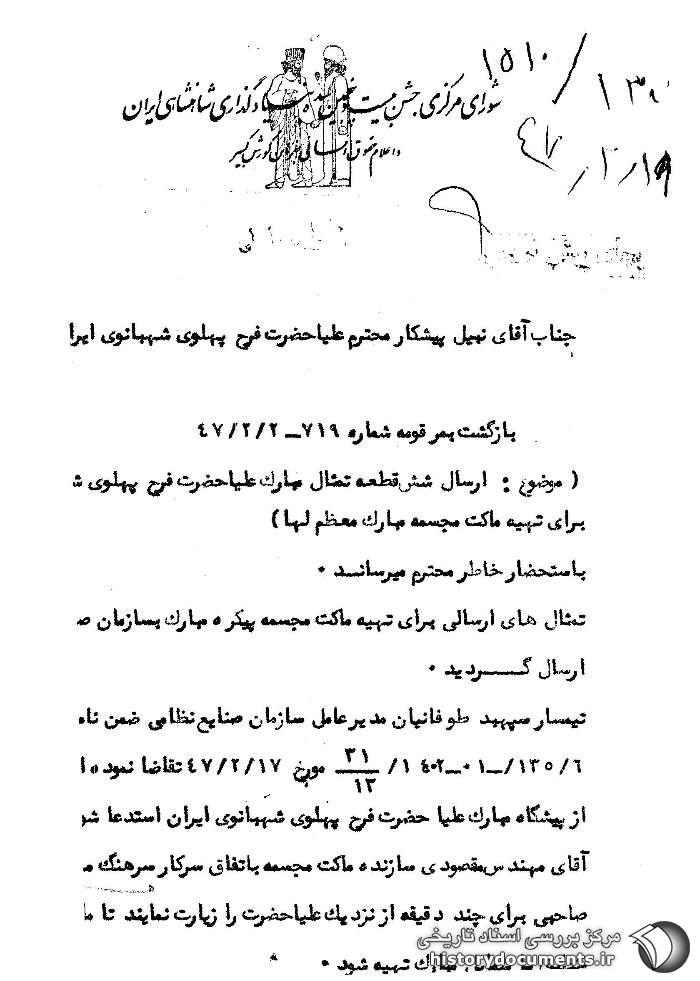 ۱۵۱۰/
۱۳۸
۴۷/۲/۱۹
شورای مرکزی جشن بیست و پنجمین سده بنیادگذاری شاهنشاهی ایران
و اعلام حقوق انسانی بفرمان کورش کبیر
جناب آقای نبیل پیشکار محترم علیاحضرت فرح پهلوی شهبانوی ایرا
بازگشت بمرقومه شماره ۷۱۹ــ ۴۷/۲/۲
( موضوع : ارسال شش قطعه تمثال مبارك علیاحضرت فرح پهلوی ش
برای تهیه ماکت مجسمه مبارك معظم لها )
باستحضار خاطر محترم میرسانـد .
تمثال های ارسالی برای تهیه ماکت مجسمه پیکره مبارك بسازمان ص
ارسال گـــردید .
تیمسار سپهبد طوفانیان مدیرعامل سازمان صنایع نظامی ضمن نام
۱۳۵/۶/ــ۰۱ــ۴۰۲ ۱/ ۳۱/۱۳ مورخ ۴۷/۲/۱۷ تقاضا نموده ا
از پیشگاه مبارك علیا حضرت فرح پهلوی شهبانوی ایران استدعا شو
آقای مهندس مقصودی سازنده ماکت مجسمه باتفاق سرکار سرهنگ م
صاحبی برای چند دقیقه از نزدیك علیاحضرت را زیارت نمایند تا ما
مبارك تهیه شود .
مرکز بررسی اسناد تاریخی
historydocuments.ir